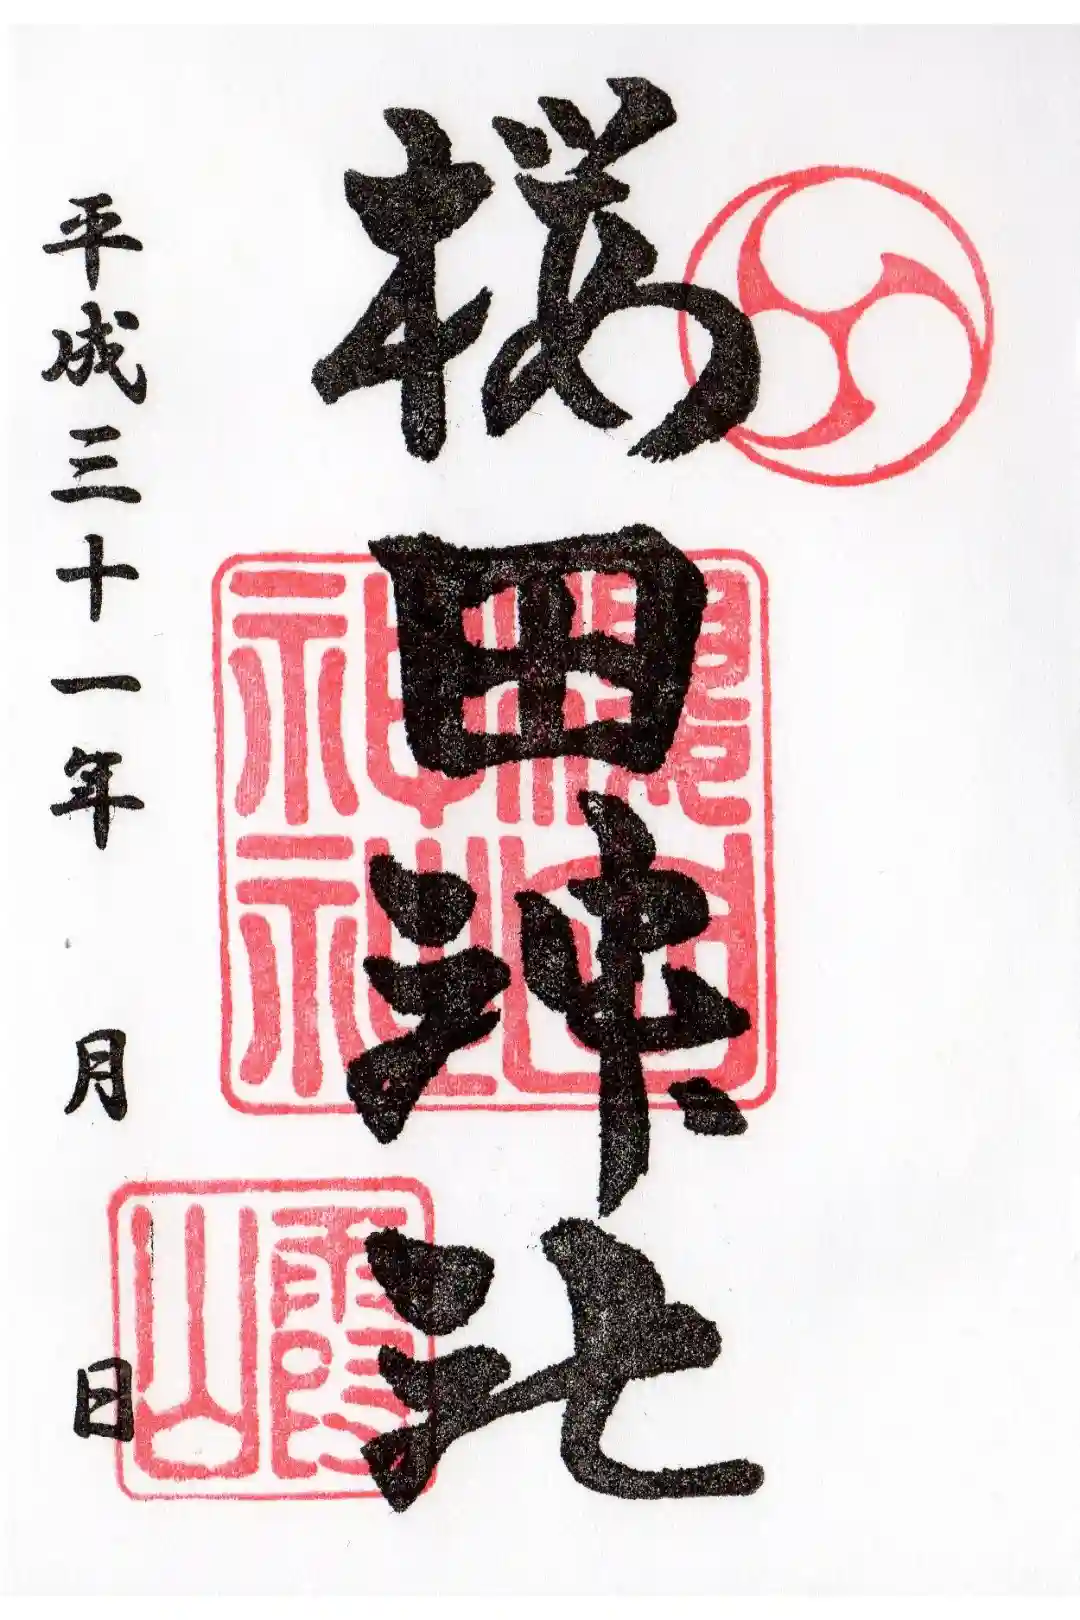 桜田神社
櫻田
神社
霞
山
平成三十一年 月 日